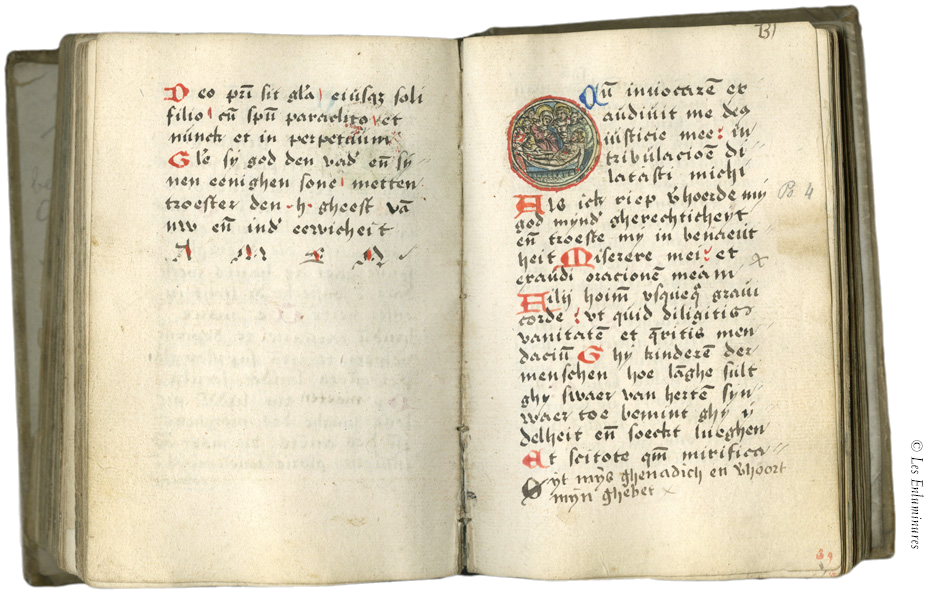 Deo pr̄i sit gl̄a eiusqȝ soli
filio cū spū paraclito et
nunck et in perpetuum
Gl̄e sy god den vad' en̄ sy
nen eenighen sone metten
troester den h gheest vā
nw en̄ ind' eewicheit
A M E N
131
Cū inuocarē et
audiuit me deꝰ
iusticie mee in
tribulacioē di
latasti michi
Als ick riep v̄hoerde my
god mynd' gherechticheyt
en̄ troeste my in benaeut
heit Miserere mei et
exaudi orationē meam
Filij hoim̄ vsqueq̄ graui
corde vt quid diligitis
vanitatē et q̄ritis men
daciū Ghy kinderē der
menschen hoe lāghe sult
ghy swaer van hertē syn
waer toe bemint ghy y
delheit en̄ soeckt lueghen
Et scitote qm̄ mirifica
Syt mys ghenadich en v̄hoort
myn ghebet x
Ps 4
x
© Les Enluminures